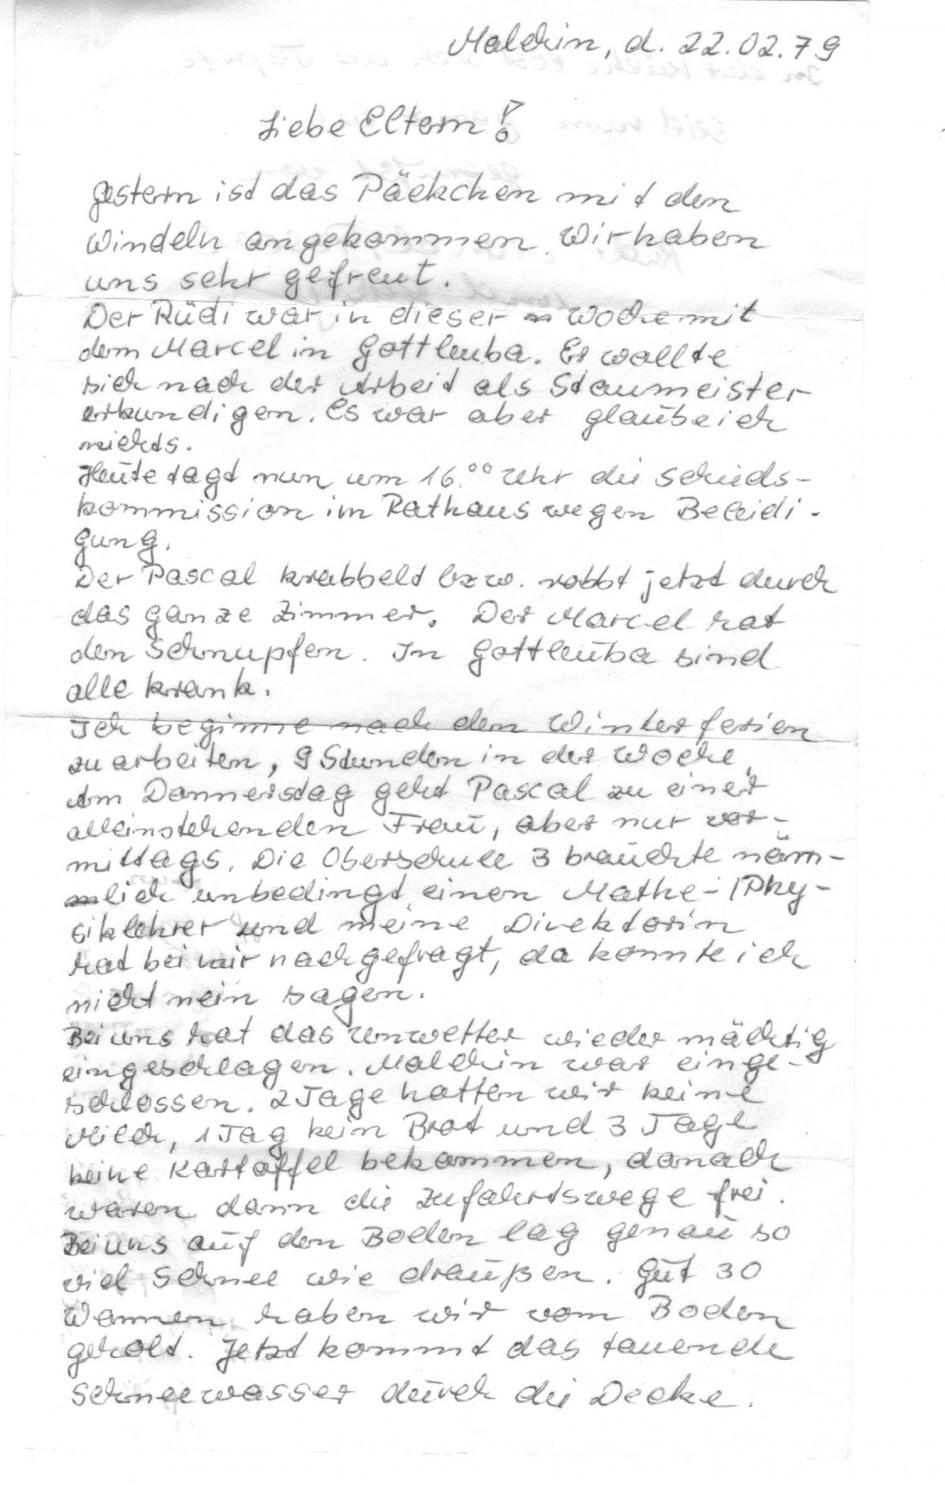 Malchin, d. 22.02.79
Liebe Eltern!
Gestern ist das Päckchen mit den
Windeln angekommen. Wir haben
uns sehr gefreut.
Der Rüdi war in dieser Woche mit
dem Marcel in Gottleuba. Er wollte
sich nach der Arbeit als Staumeister
erkundigen. Es war aber glaube ich
nichts.
Heute tagt nun um 16.00 Uhr die Schieds-
kommission im Rathaus wegen Beleidi-
gung.
Der Pascal krabbelt bzw. robbt jetzt durch
das ganze Zimmer. Der Marcel hat
den Schnupfen. In Gottleuba sind
alle krank.
Ich beginne nach den Winterferien
zu arbeiten, 9 Stunden in der Woche.
Am Donnerstag geht Pascal zu einer
alleinstehenden Frau, aber nur vor-
mittags. Die Oberschule 3 brauchte näm-
lich unbedingt einen Mathe-/Phy-
siklehrer und meine Direktorin
hat bei mir nachgefragt, da konnte ich
nicht nein sagen.
Bei uns hat das Unwetter wieder mächtig
eingeschlagen. Malchin war einge-
schlossen. 2 Tage hatten wir keine
Milch, 1 Tag kein Brot und 3 Tage
keine Kartoffel bekommen, danach
waren dann die Zufahrtswege frei.
Bei uns auf den Boden lag genau so
viel Schnee wie draußen. Gut 30
Wannen haben wir vom Boden
geholt. Jetzt kommt das tauende
Schneewasser durch die Decke.